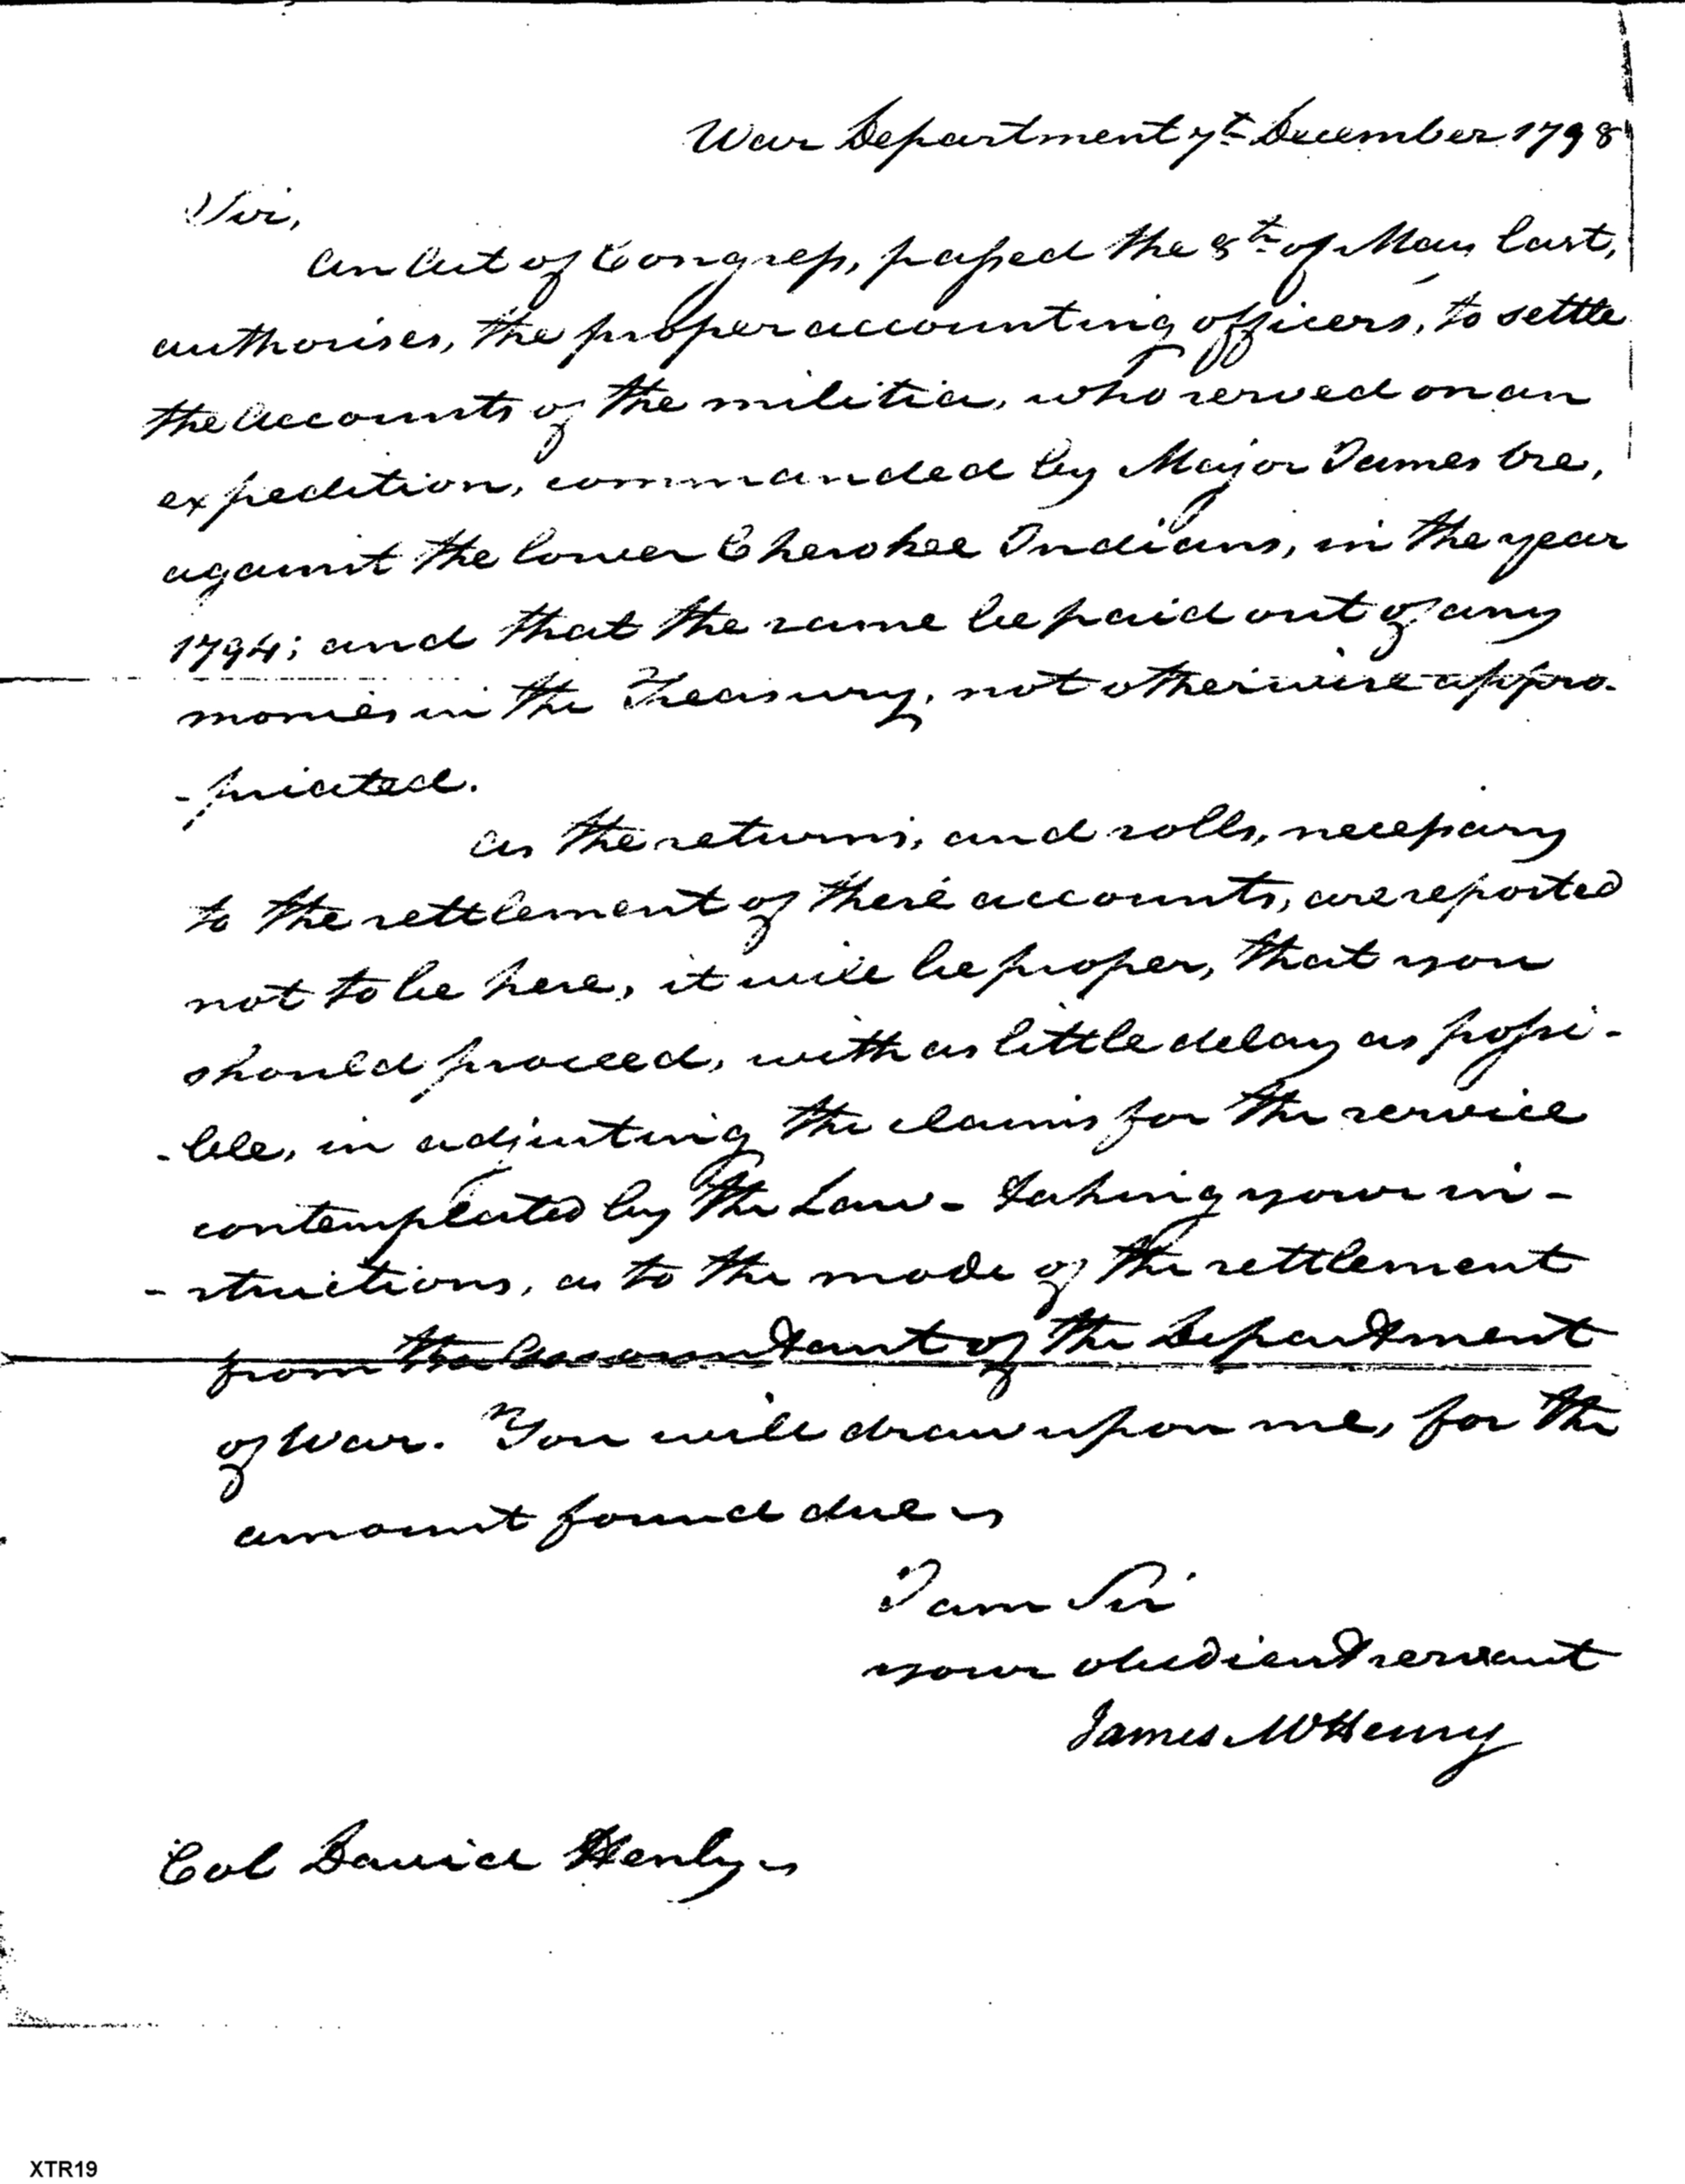 War Department 7th December 1798
Sir,
An Act of Congress, passed the 8th of May last,
authorises, the proper accounting officers, to settle
the Accounts of the militia, who served on an
expedition, commanded by Major James Ore,
against the lower Cherokee Indians, in the year
1794; and that the same be paid out of any
monies in the Treasury, not otherwise appro-
-priated.
As the returns, and rolls, necessary
to the settlement of these accounts, are reported
not to be here, it will be proper, that you
should proceed, with as little delay as possi-
-ble, in adjusting the claims for the service
contemplated by the Law - taking your in-
-structions, as to the mode of the settlement
from the Accountant of the Department
of War. You will draw upon me, for the
amount found due
I am Sir
your obedient servant
James McHenry
Col David Henly
XTR19